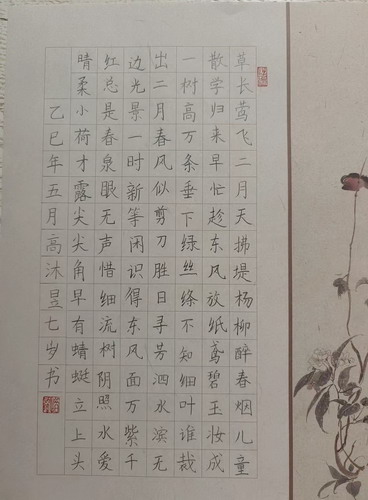 草长莺飞二月天拂堤杨柳醉春烟儿童
散学归来早忙趁东风放纸鸢碧玉妆成
一树高万条垂下绿丝绦不知细叶谁裁
出二月春风似剪刀胜日寻芳泗水滨无
边光景一时新等闲识得东风面万紫千
红总是春泉眼无声惜细流树阴照水爱
晴柔小荷才露尖尖角早有蜻蜓立上头
乙巳年五月高沐昱七岁书